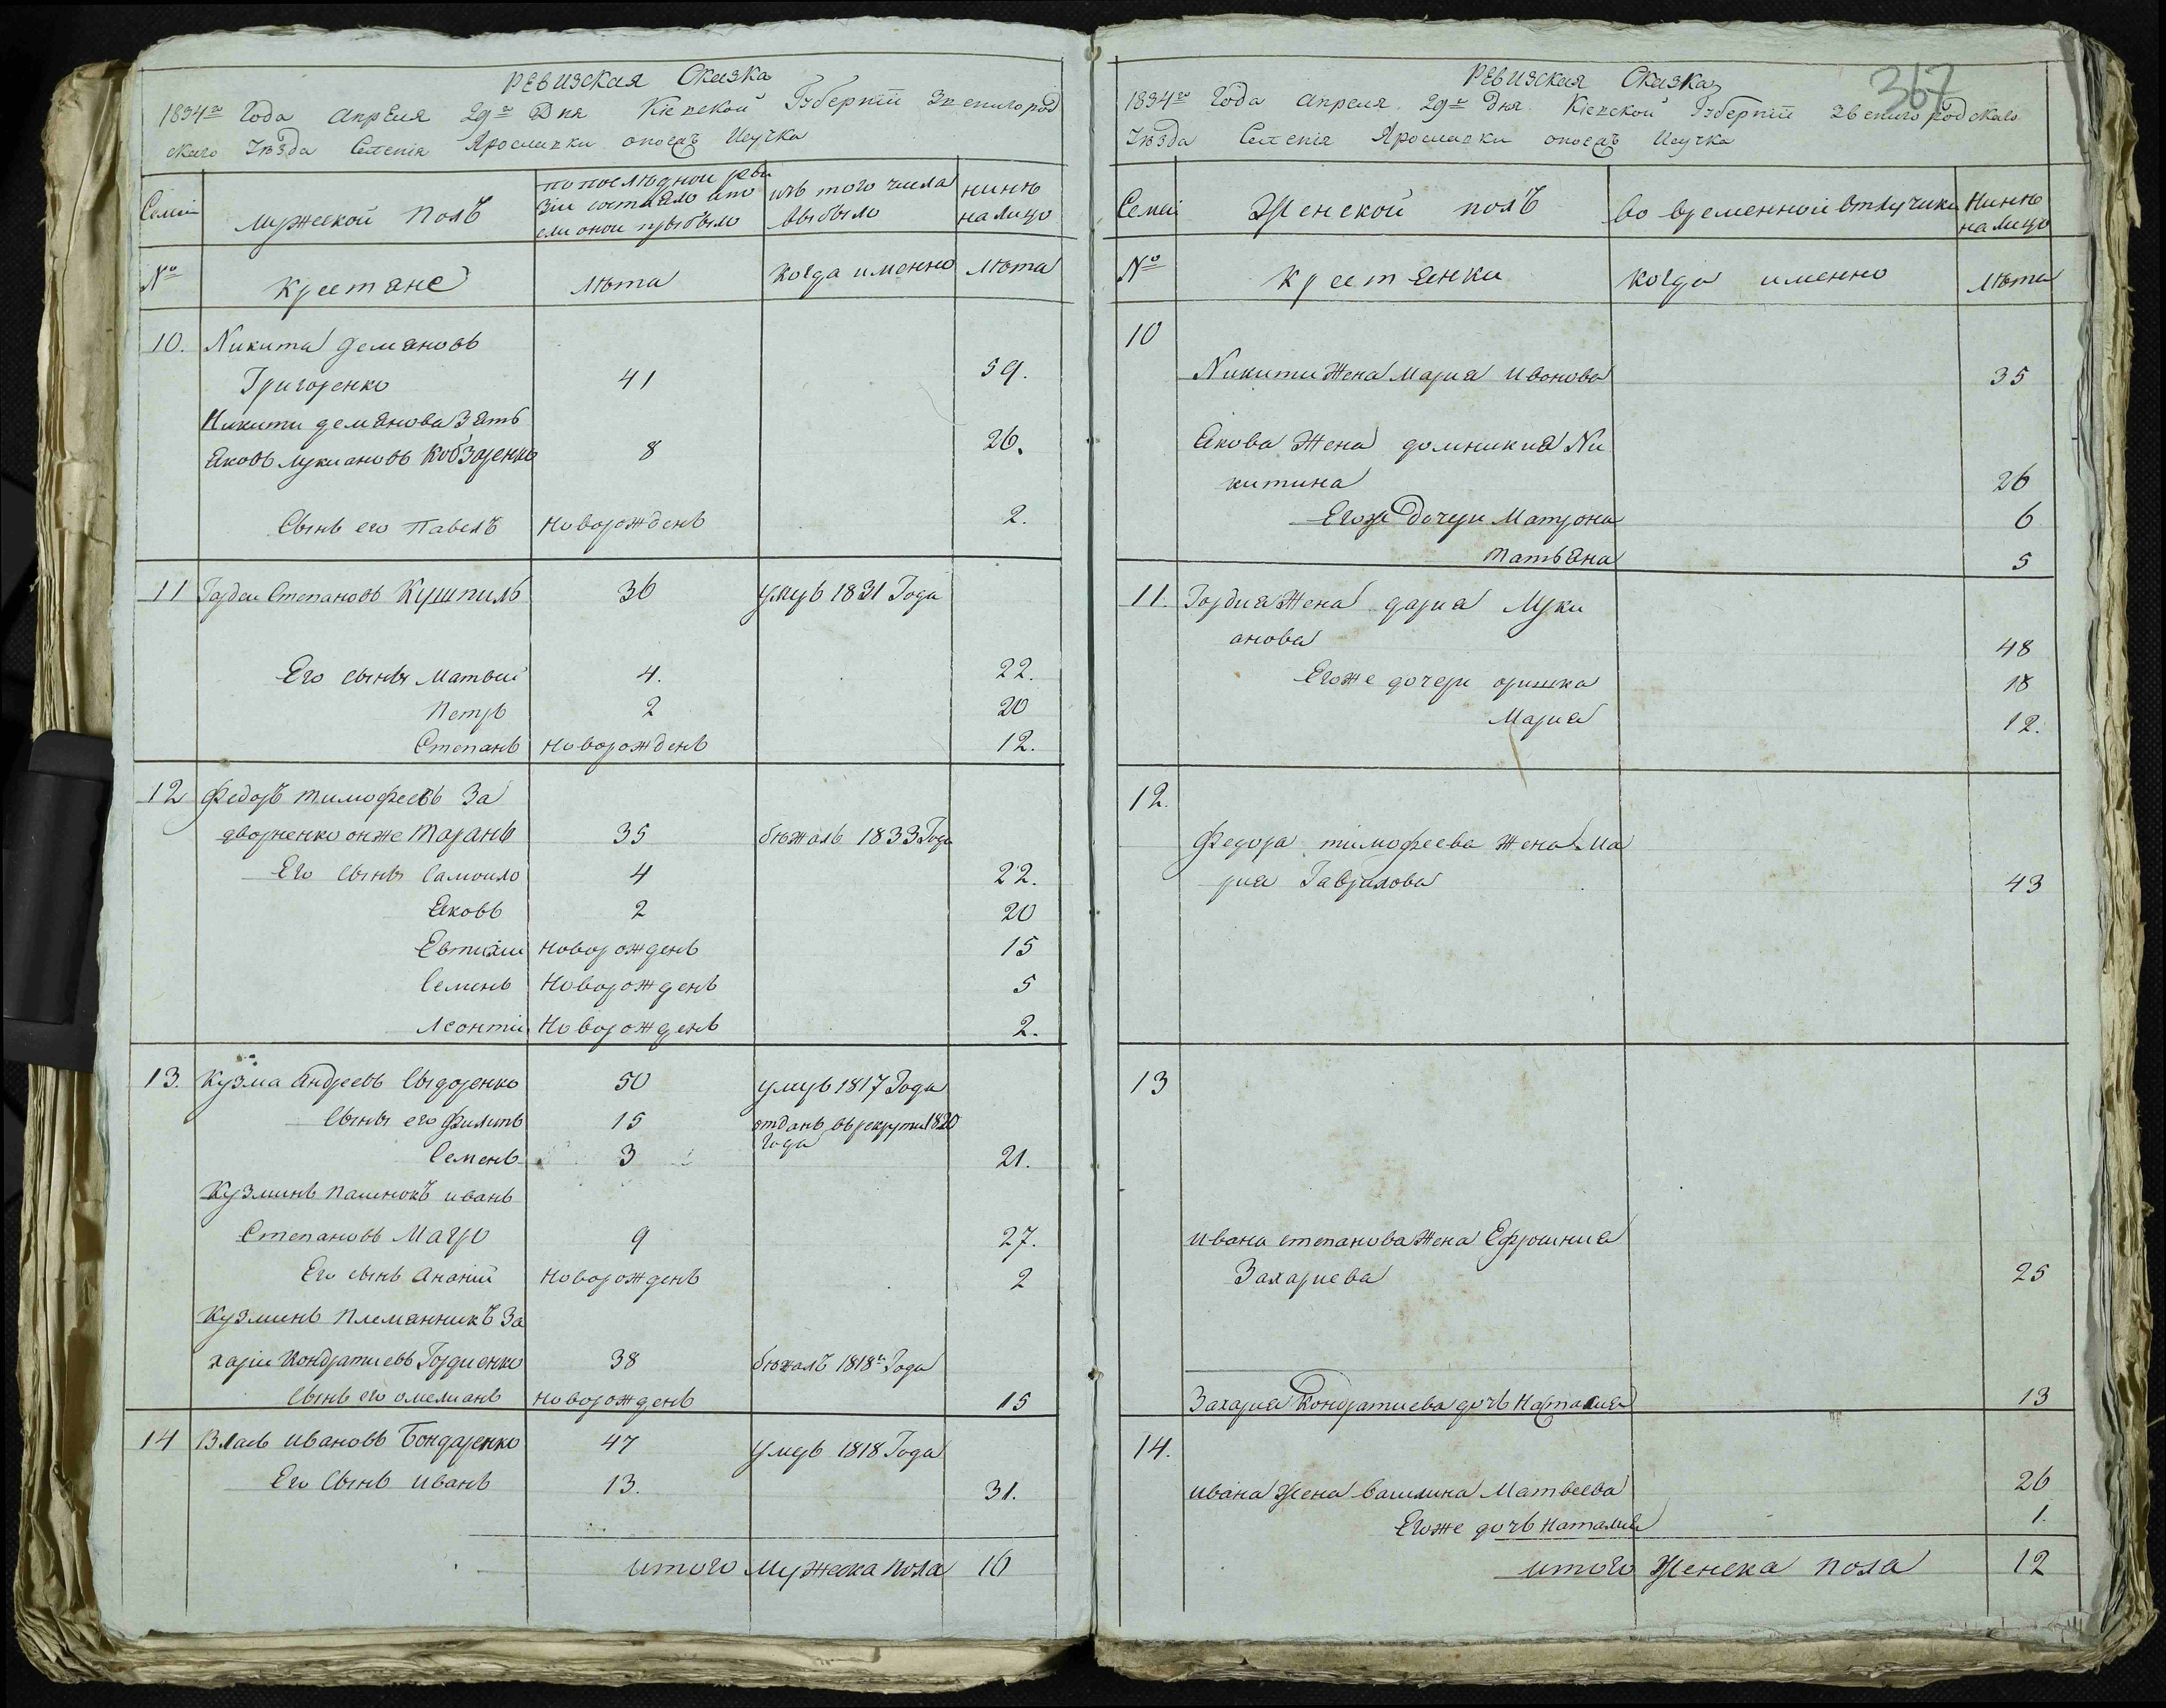 РЕВИЗСКАЯ Сказка
1834го Года Апреля 29го Дня Кіевской Губерніи Звенигород
скаго Уезда Селенія Ярославки
Семіи
Мужеской полъ
по последной реви
зіи состояло и по
сли оной прыбыло
изъ того числа
выбыло
нинѣ
на лицо
№
Крестяне
лѣта
Когда именно
лѣта
10.
Никита Демяновъ
Григоренко
41
59.
Никити демянова Зять
Яковъ лукиановъ Кобзаренко
8
26.
Сынъ его Павелъ
новорожденъ
2.
11
Гордеи Степановъ Кушпиль
36
умръ 1831 Года
Его сыны Матвіи
4.
22.
Петръ
2
20
Степанъ
новорожденъ
12.
12
Федоръ тимофеевъ За
дворненко онже Таранъ
35
бѣжалъ 1833 Года
Его Сыны Самоило
4
22.
Яковъ
2
20
Евтихии
новорожденъ
15
Семенъ
Новорожденъ
5
Леонтіи
Новорожденъ
2.
13.
Кузма Андреевъ Сыдоренко
50
умръ 1817 Года
Сыны его Филипъ
15
отданъ въ рекрути 1820
Года
Семенъ
3
21.
Кузминъ пасинокъ иванъ
Степановъ Мацо
9
27.
Его сынъ Ананіи
Новорожденъ
2
Кузминъ племянникъ За
харіи Кондратиевъ Гордиенко
38
бѣжалъ 1818го Года
Сынъ его омелианъ
новорожденъ
15
14
Власъ Ивановъ Бондаренко
47
умръ 1818 Года
Его Сынъ Иванъ
13.
31.
итого Мужеска пола
16
367
РЕВИЗСКАЯ Сказка
1834го Года Апреля 29го Дня Кіевской Губерніи Звенигородскаго
Уезда Селенія Ярославки
Семіи
Женской полъ
во временной отлучики
Нинѣ
на лицо
№
Крестянки
когда именно
лѣта
10
Никити Жена Мариа Иванова
35
Якова Жена домникия Ни
китина
26
Егоже Дочери Матрона
6
татьяна
5
11.
Гордия Жена дариа Луки
анова
48
Егоже дочери оришка
18
Мариа
12.
12.
Федора тимофеева жена Ма
риа Гаврилова
43
13
Ивана степанова Жена Ефросиния
Захариева
25
Захария Кондратиева дочъ Наталия
13
14.
Ивана Жена Василина Матвеева
26
Егоже дочъ Наталия
1.
итого Женска пола
12